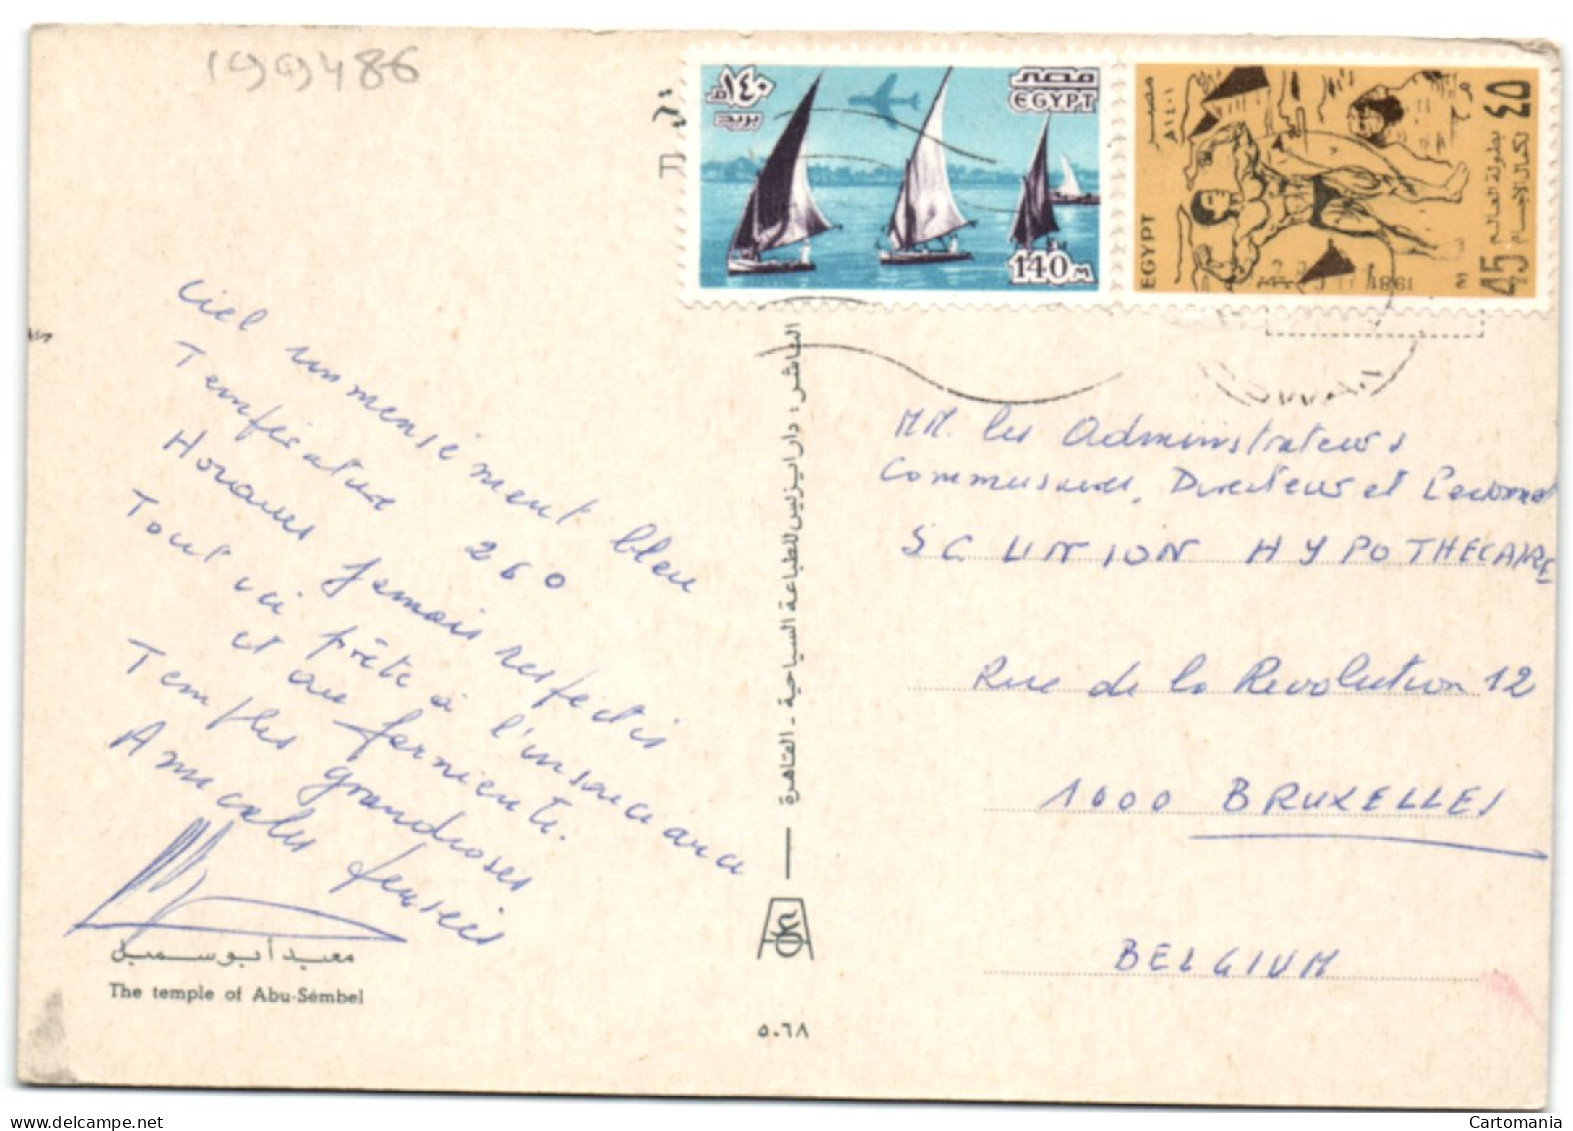 199486
١٤٠ م
بريد
مصر
EGYPT
140 M
مصر
EGYPT
بطولة العالم
لكمال الأجسام
٤٥
45
1981
Ciel immensément bleu
Température 260
Horaires jamais respectés
Tout ici prête à l'insouciance
et au farniente.
Temples grandioses
Amicales pensées
معبد أبو سمبل
The temple of Abu-Sémbel
الناشر : دار ايزيس للطباعة السياحية - القاهرة
٥٠٦٨
MM. les Administrateurs
Commissaires, Directeurs et Personnel
SC UNION HYPOTHECAIRE
Rue de la Révolution 12
1000 BRUXELLES
BELGIUM
Cartomania